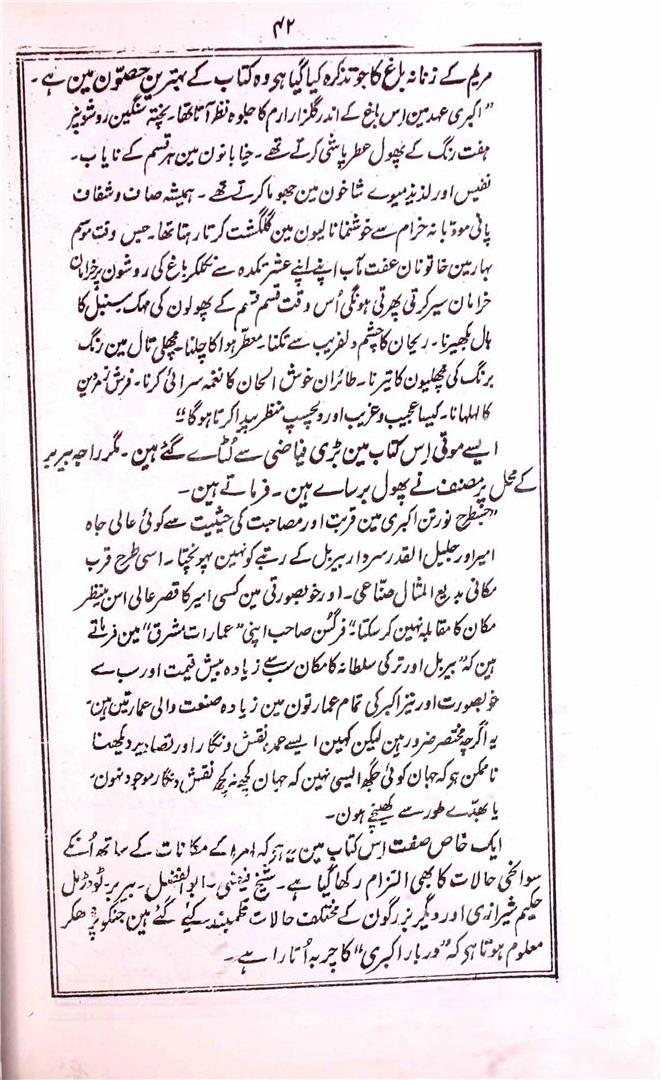 ۴۲
مریم کے زنانہ باغ کا جو تذکرہ کیا گیا ہی وہ کتاب کے بہترین حصّون مین ہے۔
”اکبری عہد مین اِس باغ کے اندر گلزار ارم کا جلوہ نظر آتا تھا۔ پختہ سنگین روشونپر
ہفت رنگ کے پھول عطر پاشی کرتے تھے۔ خیابانون مین ہر قسم کے نایاب۔
نفیس اور لذیذ میوے شاخون مین جھوما کرتے تھے۔ ہمیشہ صاف و شفاف
پانی مودبانہ خرام سے خوشنما نالیون مین گلگشت کرتا رہتا تھا۔ جس وقت موسم
بہار مین خاتونان عفت مآب اپنے اپنے عشرتکدہ سے نکلکر باغ کی روشون پر خرامان
خرامان سیر کرتی پھرتی ہونگی اُس وقت قسم قسم کے پھولون کی مہک سنبل کا
بال بکھیرنا۔ ریحان کا چشم دلفریب سے تکنا۔ معطر ہوا کا چلنا۔ مچھلی تال مین رنگ
برنگ کی مچھلیون کا تیرنا۔ طائران خوش الحان کا نغمہ سرائی کرنا۔ فرش زمردین
کا لہلہانا۔ کیسا عجیب و غریب اور دلچسپ منظر پیدا کرتا ہوگا“
ایسے موتی اِس کتاب مین بڑی فیاضی سے لُٹاے گئے ہین۔ مگر راجہ بیربر
کے محل پر مصنف نے پھول برساے ہین۔ فرماتے ہین۔
”جسطرح نورتن اکبری مین قربت اور مصاحبت کی حیثیت سے کوئی عالی جاہ
امیر اور جلیل القدر سردار بیربل کے رتبے کو نہین پہونچتا۔ اسی طرح قرب
مکانی بدیع المثال صنّاعی۔ اور خوبصورتی مین کسی امیر کا قصر عالی اس بینظر
مکان کا مقابلہ نہین کر سکتا“ فرگسن صاحب اپنی ”عمارات مشرق“ مین فرماتے
ہین کہ ”بیربل اور ترکی سلطانہ کا مکان سب سے زیادہ بیش قیمت اور سب سے
خوبصورت اور نیز اکبر کی تمام عمارتون مین زیادہ صنعت والی عمارتین ہین۔
یہ اگرچہ مختصر ضرور ہین لیکن کہین ایسے عمدہ نقش و نگار اور تصاویر دیکھنا
ناممکن ہو کہ جہان کوئی جگھ ایسی نہین کہ جہان کچھ نہ کچھ نقش و نگار موجود نہون۔
یا بھدّے طور سے کھینچے ہون۔
ایک خاص صفت اِس کتاب مین یہ ہی کہ امرا کے مکانات کے ساتھ اُنکے
سوانحی حالات کا بھی التزام رکھا گیا ہے۔ شیخ فیضی۔ ابو الفضل۔ بیربر۔ ٹوڈرمل
حکیم شیرازی اور دیگر بزرگون کے مختلف حالات قلمبند کیے گئے ہین جنکو پڑھکر
معلوم ہوتا ہی کہ ”دربار اکبری“ کا چربہ اُتارا ہے۔